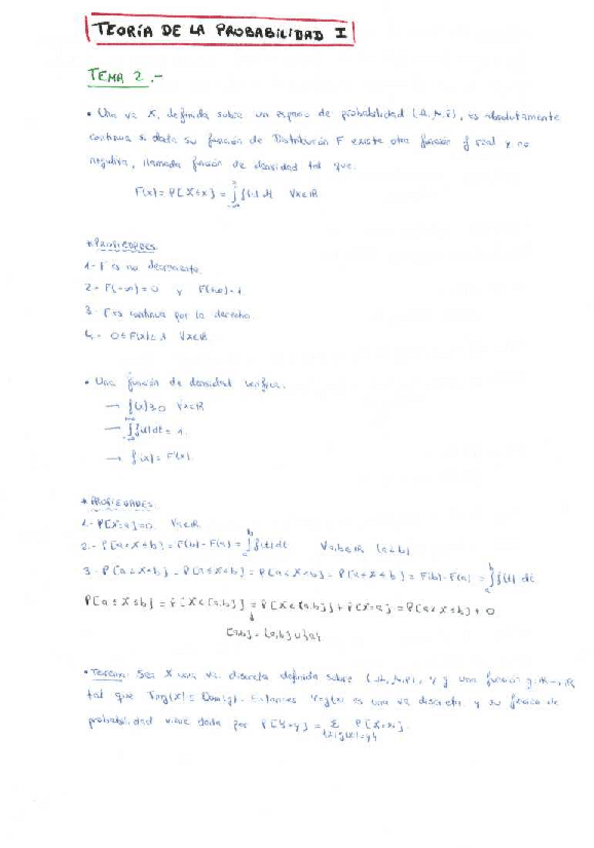 TEORÍA DE LA PROBABILIDAD I
TEMA 2.-
• Una va X, definida sobre un espacio de probabilidad (Ω, A, P), es absolutamente
continua si dada su función de Distribución F existe otra función f real y no
negativa, llamada función de densidad tal que:
F(x) = P[X≤x] = ∫_{-∞}^{x} f(t) dt ∀x∈ℝ
* PROPIEDADES
1.- F es no decreciente.
2.- F(-∞)=0 y F(+∞)=1
3.- F es continua por la derecha.
4.- 0≤F(x)≤1 ∀x∈ℝ
• Una función de densidad verifica:
→ f(x)≥0 ∀x∈ℝ
→ ∫ f(t)dt = 1.
→ f(x) = F'(x).
* PROPIEDADES
1.- P[X=a]=0 ∀a∈ℝ
2.- P[a<X≤b] = F(b)-F(a) = ∫_a^b f(t)dt ∀a,b∈ℝ (a<b)
3.- = F(b)-F(a) = ∫_a^b f(t) dt
P[a≤X≤b] = P[X∈[a,b]] = P[X∈(a,b]] + P[X=a] = P[a<X≤b] + 0
[a,b] = (a,b] ∪ {a}
• Teorema: Sea X una va. discreta definida sobre (Ω, A, P), y g una función g: ℝ→ℝ
tal que Img(X) ⊆ Dom(g). Entonces Y=g(X) es una va discreta y su función de
probabilidad viene dada por P[Y=y] = Σ P[X=x]
{x/g(x)=y}